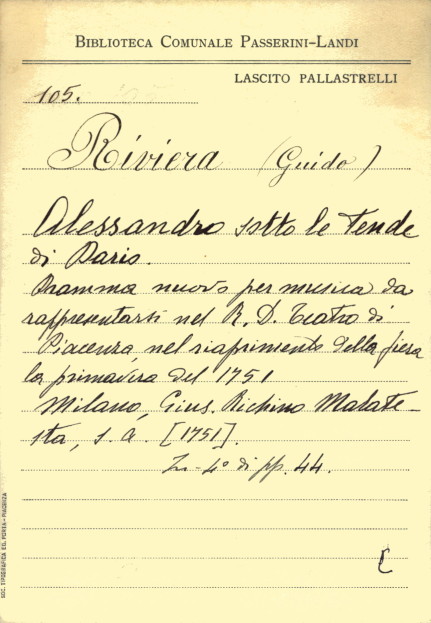 BIBLIOTECA COMUNALE PASSERINI-LANDI
LASCITO PALLASTRELLI
105.
Riviera (Guido)
Alessandro sotto le Tende
di Dario.
Dramma nuovo per musica da
rappresentarsi nel R. D. Teatro di
Piacenza, nel riaprimento della fiera
la primavera del 1751
Milano, Gius. Richino Malate-
sta, s. a. [1751].
In-4° di pp. 44.
SOC. TIPOGRAFICA ED. PORTA-PIACENZA